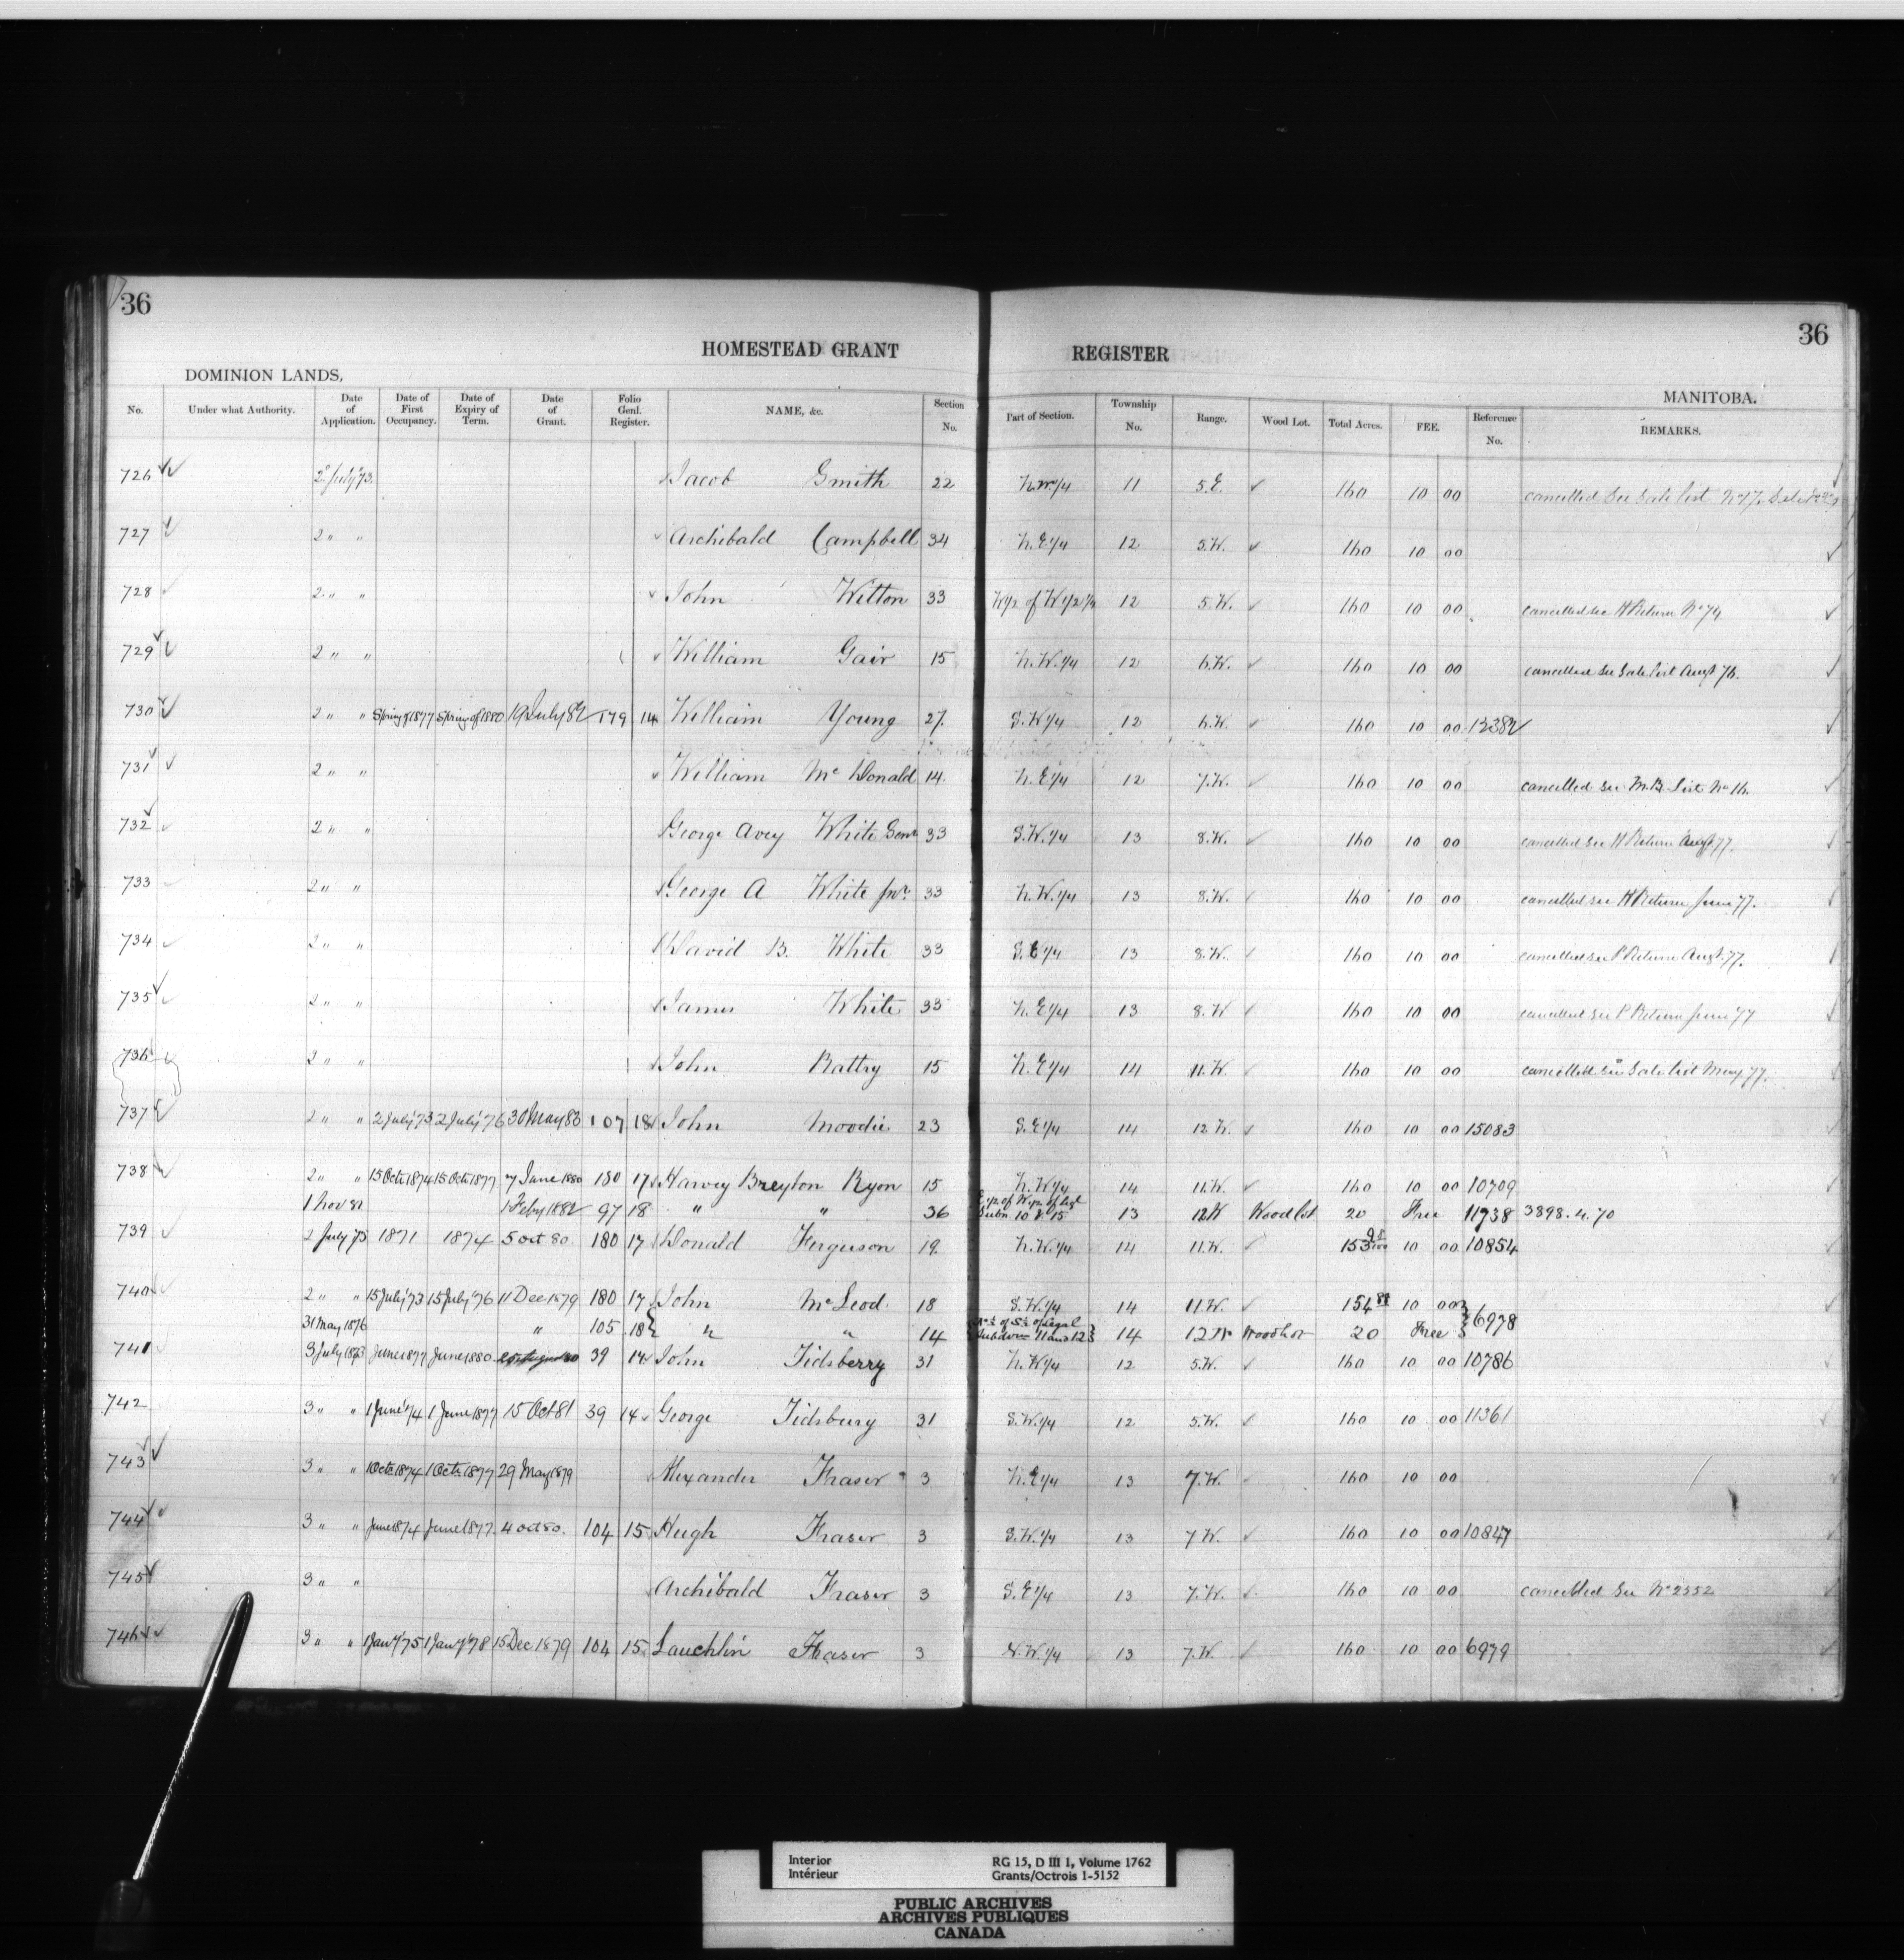 36
36
HOMESTEAD GRANT REGISTER
DOMINION LANDS,
MANITOBA.
No. Under what Authority. Date of Application. Date of First Occupancy. Date of Expiry of Term. Date of Grant. Folio Genl. Register. NAME, &c. Section No. Part of Section. Township No. Range. Wood Lot. Total Acres. FEE. Reference No. REMARKS.
726 2 July 73 Jacob Smith 22 N.W 1/4 11 5.E. 160 10 00 cancelled See Sale list
727 2 " " Archibald Campbell 34 N.E 1/4 12 5.W. 160 10 00
728 2 " " John Wilton 33 W 1/2 of W 1/2 12 5.W. 160 10 00 cancelled see H Return No 74
729 2 " " William Gair 15 N.W. 1/4 12 6.W. 160 10 00 cancelled see Sale list Augt 76.
730 2 " " Spring of 1877 Spring of 1880 19 July 82 179 14 William Young 27 S.W 1/4 12 6.W. 160 10 00 12382
731 2 " " William Mc Donald 14 N.E 1/4 12 7.W. 160 10 00 cancelled see M.B. List No 16.
732 2 " " George Avey White Senr 33 S.W. 1/4 13 8.W. 160 10 00 cancelled see H Return Augt 77.
733 2 " " George A White Junr. 33 N.W. 1/4 13 8.W. 160 10 00 cancelled see H Return June 77.
734 2 " " David B. White 33 S.E 1/4 13 8.W. 160 10 00 cancelled see P Return Augt. 77.
735 2 " " James White 33 N.E 1/4 13 8.W 160 10 00 cancelled see P Return June 77
736 2 " " John Rattry 15 N.E 1/4 14 11.W. 160 10 00 cancelled see Sale list May 77.
737 2 " " 2 July '73 2 July '76 30 May 83 107 18 John Moodie 23 S.E 1/4 14 12 W. 160 10 00 15083
738 2 " " 15 Oct 1874 15 Oct 1877 7 June 1880 180 17 Harvey Breyton Ryon 15 N.W 1/4 14 11.W. 160 10 00 10709
1 Nov 81 1 Feby 1882 97 18 " " 36 E 1/2 of W 1/2 of Legl Subn. 10 & 15 13 12 W Wood lot 20 Free 11738 3898.4.70
739 2 July 73 1871 1874 5 oct 80 180 17 Donald Ferguson 19 N.W. 1/4 14 11.W. 153 10 00 10854
740 2 " " 15 July '73 15 July '76 11 Dec 1879 180 17 John McLeod 18 S.W. 1/4 14 11.W. 154 10 00 6978
31 May 1876 " 105 18 " " 14 N 1/2 of S 1/2 of Legal Subdivn 11 and 12 14 12 W Woodlot 20 Free
741 3 July 1873 June 1877 June 1880 39 14 John Tidsberry 31 N.W 1/4 12 5.W. 160 10 00 10786
742 3 " " 1 June '74 1 June 1877 15 Oct 81 39 14 George Tidsbury 31 S.W. 1/4 12 5.W. 160 10 00 11361
743 3 " " 1 Oct 1874 1 Oct 1877 29 May 1879 Alexander Fraser 3 N.E 1/4 13 7.W. 160 10 00
744 3 " " June 1874 June 1877 4 oct 80. 104 15 Hugh Fraser 3 S.W. 1/4 13 7.W 160 10 00 10847
745 3 " " Archibald Fraser 3 S.E 1/4 13 7.W. 160 10 00 cancelled See No 2552
746 3 " " 1 Jany '75 1 Jany '78 15 Dec 1879 104 15 Lauchlin Fraser 3 N.W. 1/4 13 7.W. 160 10 00 6979
Interior RG 15, D III 1, Volume 1762
Intérieur Grants/Octrois 1-5152
PUBLIC ARCHIVES
ARCHIVES PUBLIQUES
CANADA